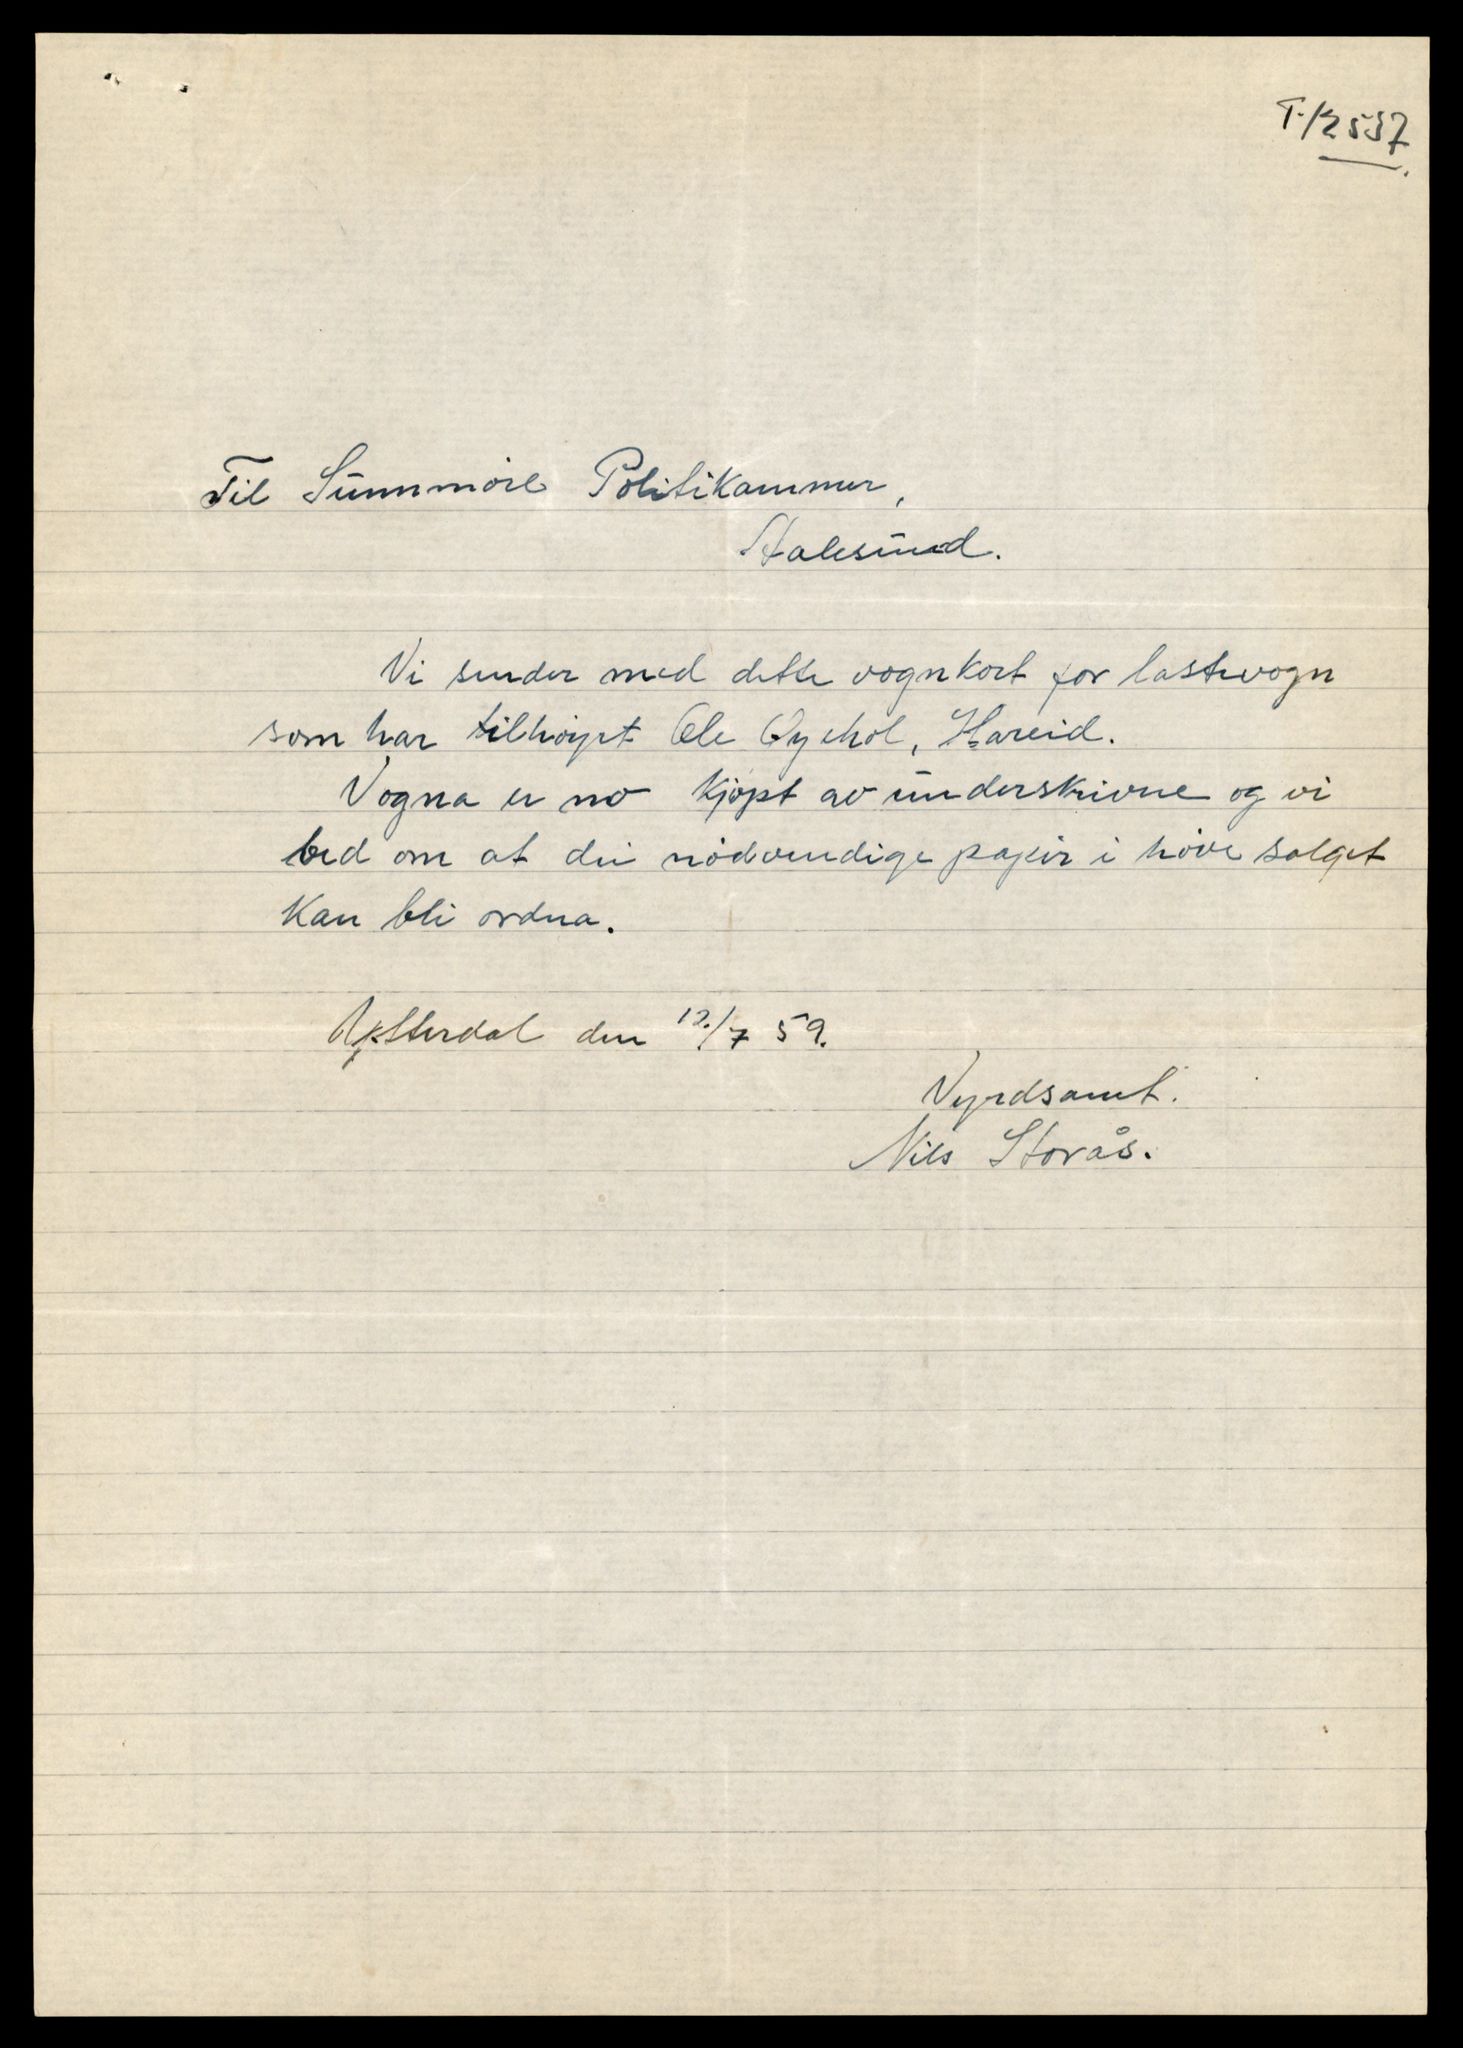 T-12537
Til Sunnmöre Politikammer,
Aalesund.
Vi sender med dette vognkort for lastevogn
som har tilhöyrt Ole Öyehol, Hareid.
Vogna er no kjöpt av underskrivne og vi
bed om at dei nödvendige papir i höve salget
kan bli ordna.
den 12./7 59.
Vyrdsamt.
Nils Storås.